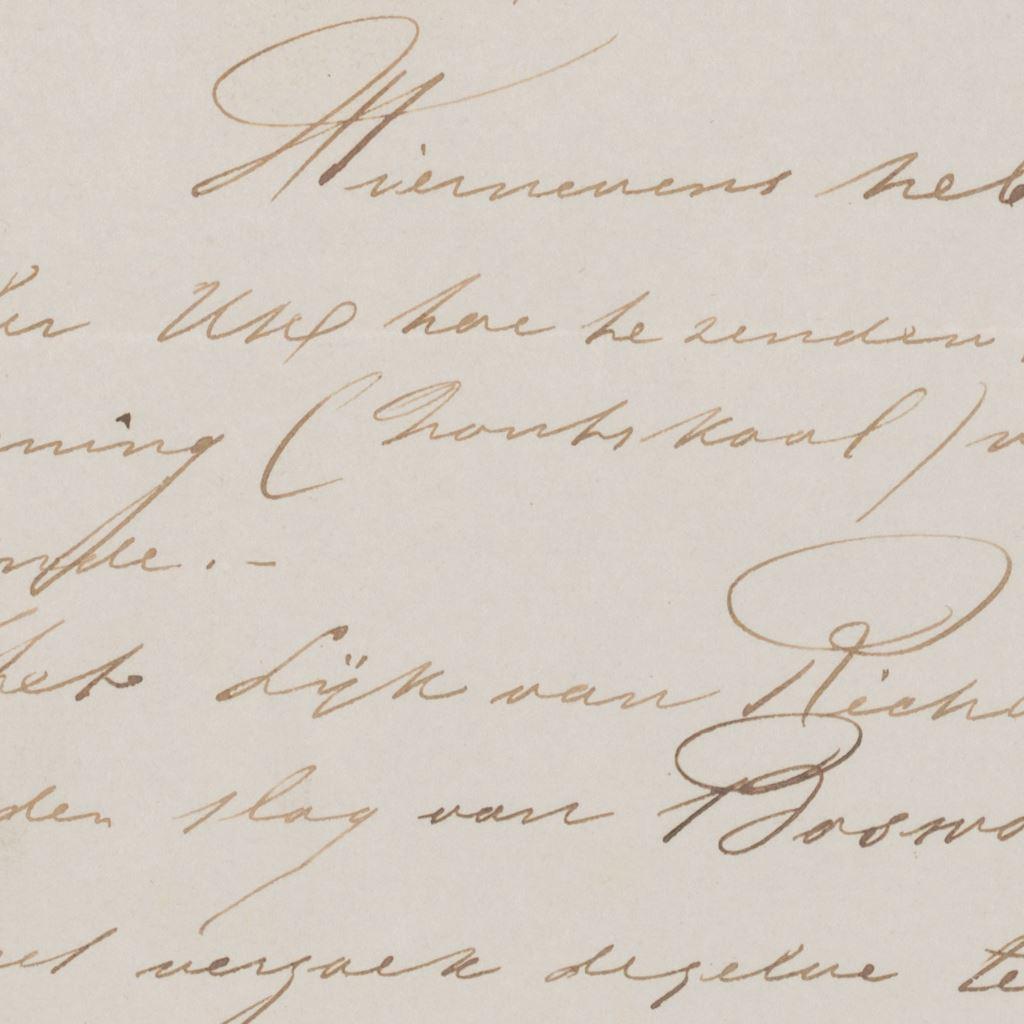 Hiernevens heb
UEd hoe te zenden
ning (houtskool)
nde. -
het Lijk van Richa
den slag van Boswo
verzoek dezelve te